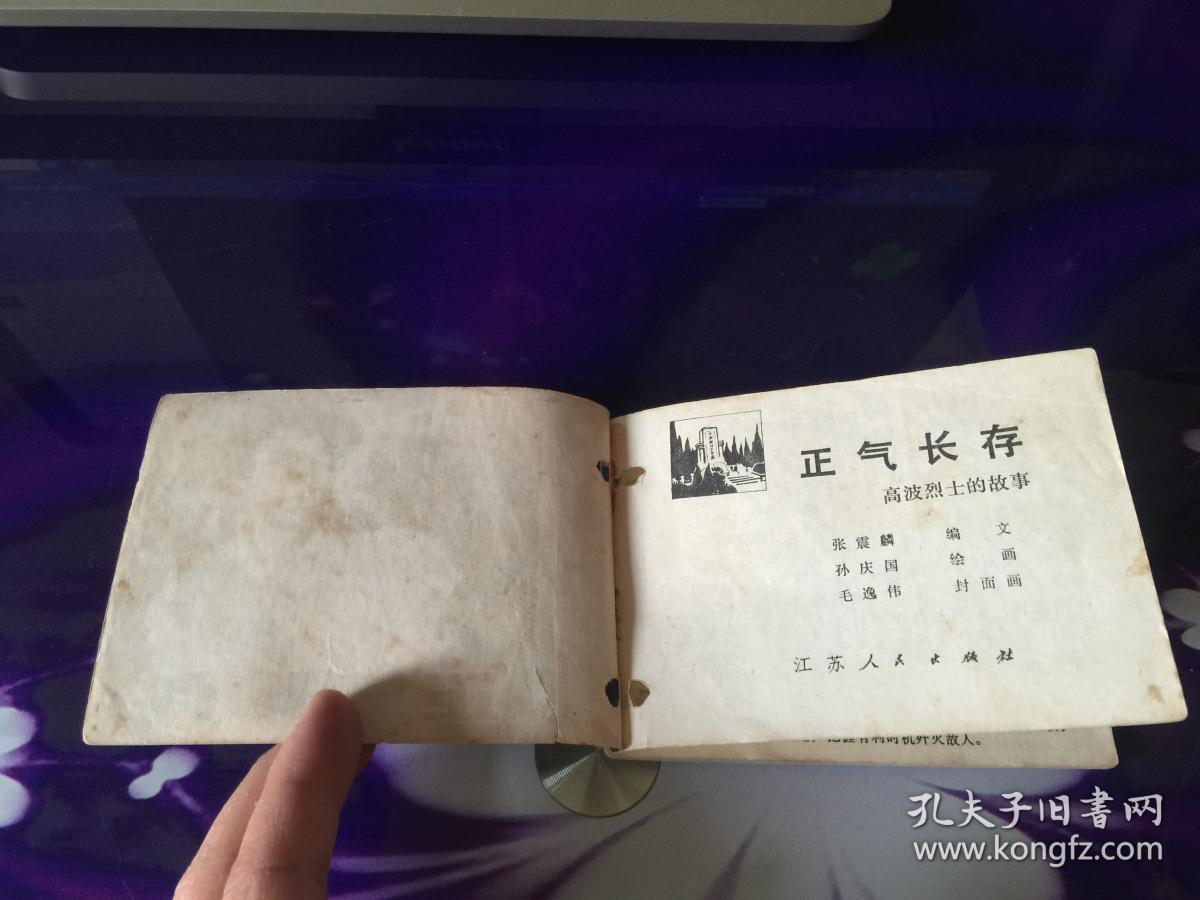 正气长存
高波烈士的故事
张震麟 编文
孙庆国 绘画
毛逸伟 封面画
江苏人民出版社
有利时机歼灭敌人。
孔夫子旧书网
www.kongfz.com